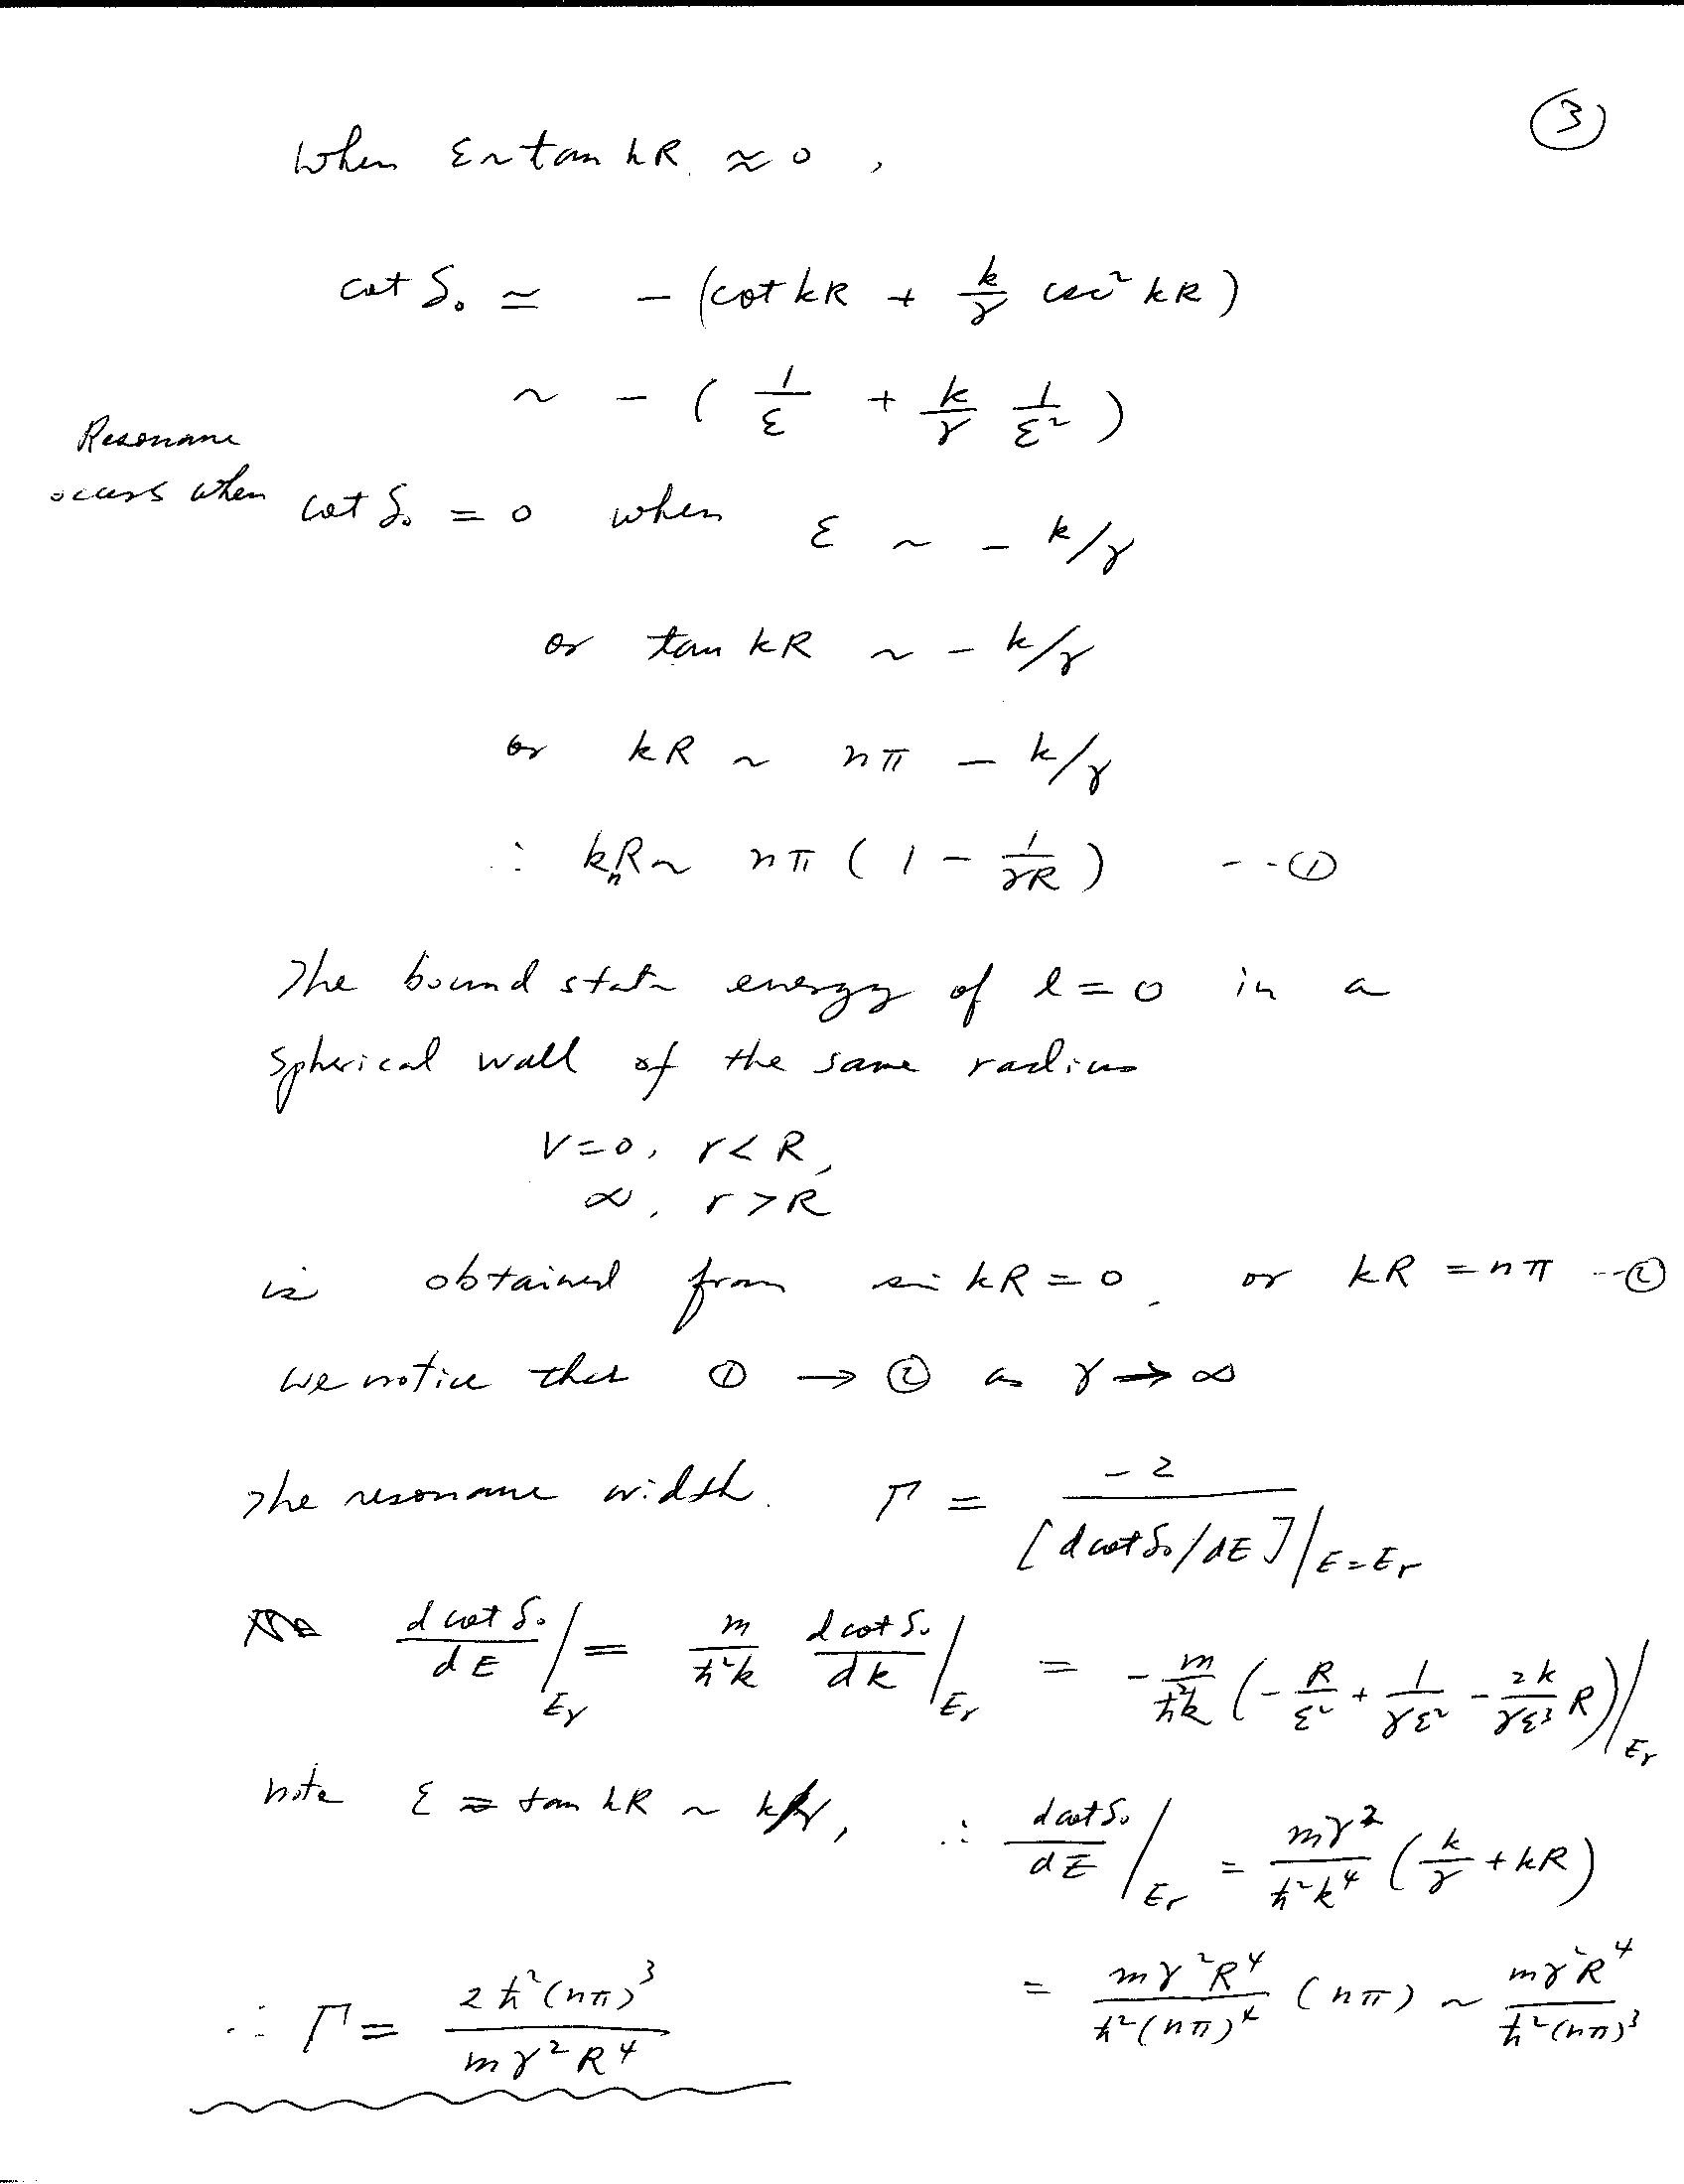 ③
When ε ~ tan kR ≈ 0 ,
cot δ₀ ≃ - (cot kR + k/γ csc² kR )
~ - ( 1/ε + k/γ 1/ε² )
Resonane
occurs when cot δ₀ = 0 when ε ~ - k/γ
or tan kR ~ - k/γ
or kR ~ nπ - k/γ
∴ kₙR ~ nπ ( 1 - 1/γR ) --①
The bound state energy of l=0 in a
spherical wall of the same radius
V=0, r<R,
∞, r>R
is obtained from sin kR = 0, or kR = nπ --②
we notice that ① → ② as γ → ∞
The resonane width. Γ = -2 / [d cot δ₀/dE]|E=Er
d cot δ₀/dE |Er = m/ħ²k d cot δ₀/dk |Er = - m/ħ²k ( - R/ε² + 1/γε² - 2k/γε³ R )|Er
note ε = tan kR ~ k/γ, ∴ d cot δ₀/dE |Er = mγ²/ħ²k⁴ ( k/γ + kR )
= mγ²R⁴/ħ²(nπ)⁴ (nπ) ~ mγ²R⁴/ħ²(nπ)³
∴ Γ = 2ħ²(nπ)³/mγ²R⁴